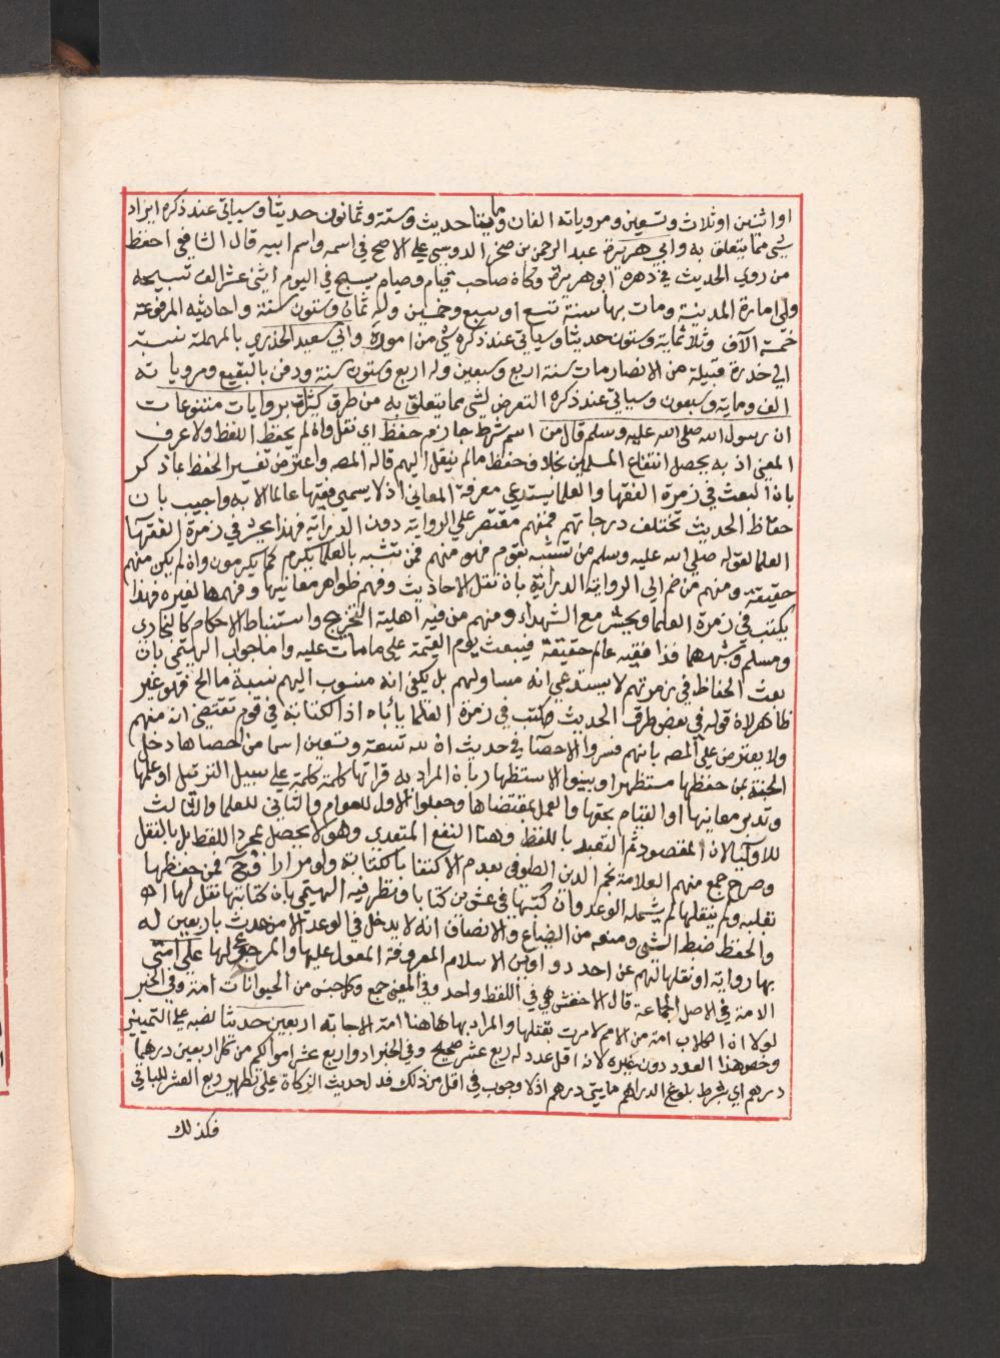 او اثنين او ثلاث وتسعين ومروياته الفان وما يتا حديث وستة وثمانون حديثا وسياتي عند ذكره ايراد
شي مما يتعلق به وابي هريرة عبد الرحمن بن صخر الدوسي علي الاصح في اسمه واسم ابيه قال الشافعي احفظ
من روي الحديث في دهره ابو هريرة وكان صاحب قيام وصيام يسبح في اليوم اثني عشر الف تسبيحه
ولي امارة المدينة ومات بها سنة تسع او سبع وخمسين وله ثمان وستون سنة واحاديثه المرفوعة
خمسة الآف وثلاثماية وستون حديثا وسياتي عند ذكره شي من اموره وابي سعيد الخدري بالمهملة نسبة
الي خدرة قبيلة من الانصار مات سنة اربع وسبعين وله اربع وستون سنة ودفن بالبقيع ومرويا ته
الف وماية وسبعون وسياتي عند ذكره التعرض لشي مما يتعلق به من طرق كثيرة بروايات متنوعات
ان رسول الله صلي الله عليه وسلم قال من اسم شرط جازم حفظ اي نقل وان لم يحفظ اللفظ ولا عرف
المعني اذ به يحصل انتفاع المسلمين بخلاف حفظ مالم ينقل اليهم قاله المصه واعترض تفسير الحفظ بما ذكر
بان البعث في زمرة الفقها والعلما يستدعي معرفة المعاني اذ لا يسمي فقيها عالما الا به واجيب بان
حفاظ الحديث تختلف درجاتهم فمنهم مقتصر علي الرواية دون الدراية فهذا يحشر في زمرة الفقرآ
العلما لقوله صلي الله عليه وسلم من تشبه بقوم فهو منهم فمن تشبه بالعلما يكرم كما يكرمون وان لم يكن منهم
حقيقة ومنهم من ضم الي الرواية الدراية بان نقل الاحاديث وفهم ظواهر معانيها وفهمها لغيره فهذا
يكتب في زمرة العلما ويحشر مع الشهداء ومنهم من فيه اهلية التخريج واستنباط الاحكام كالبخاري
ومسلم وشبههما فذا فقيه عالم حقيقة فيبعث يوم القيمة علي ما مات عليه واما جواب الهيتمي بان
بعث الحفاظ في زمرتهم لا يستدعي انه مساو لهم بل يكفي انه منسوب اليهم نسبة ما الخ فهو غير
ظاهر لان قوله في بعض طرق الحديث وكتب في زمرة العلما ياباه اذ الكتابة في قوم تقتضي انه منهم
ولا يعترض علي المصه بانهم فسروا الاحصا في حديث ان لله تسعة وتسعين اسما من احصاها دخل
الجنة بمن حفظها مستظهرا وبينوا الاستظهار بان المراد به قراتها كلمة كلمة علي سبيل الترتيل او علمها
وتدبر معانيها او القيام بحقها والعمل بمقتضاها وجعلوا الاول للعوام والثاني للعلما والثالث
للاوليا لان المقصود ثم التعبد باللفظ وهنا النفع المتعدي وهو لا يحصل بمجرد اللفظ بل بالنقل
وصرح جمع منهم العلامة نجم الدين الطوفي بعدم الاكتفا بالكتابة ولو مرارا فمن حفظها
بقلبه ولم ينقلها لم يشمله الوعد وان كتبها في عشرين كتابا ونظر فيه الهيتمي بان كتابتها نقل لها اه
والحفظ ضبط الشي ومنعه من الضياع والانصاف انه لا يدخل في الوعد الا من حدث باربعين له
بها رواية او نقلها لهم عن احد دواوين الاسلام المعروفة المعول عليها والمرجوع لها علي امتي
الامة في الاصل الجماعة قال الاخفش هي في اللفظ واحد وفي المعني جمع وكل جنس من الحيوانات امة وفي الخبر
لولا ان الكلاب امة من الامم لامرت بقتلها والمراد بها هاهنا امة الاجابة اربعين حديثا نصبه علي التمييز
وخص هذا العدد دون غيره لانه اقل عدد له ربع عشر صحيح وفي الخبر ادوا ربع عشر اموالكم من كل اربعين درهما
درهم اي بشرط بلوغ الدراهم مايتي درهم اذ لا وجوب في اقل من ذلك فدل حديث الزكاة علي تطهير ربع العشر للباقي
فكذلك